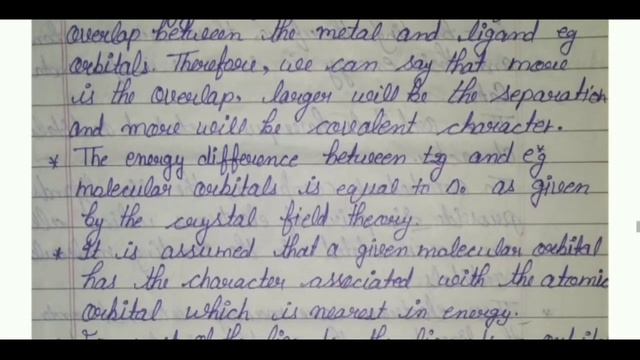 overlap between the metal and ligand eg
orbitals. Therefore, we can say that more
is the overlap, larger will be the separation
and more will be covalent character.
* The energy difference between t2g and eg*
molecular orbitals is equal to Δo as given
by the crystal field theory.
* It is assumed that a given molecular orbital
has the character associated with the atomic
orbital which is nearest in energy.